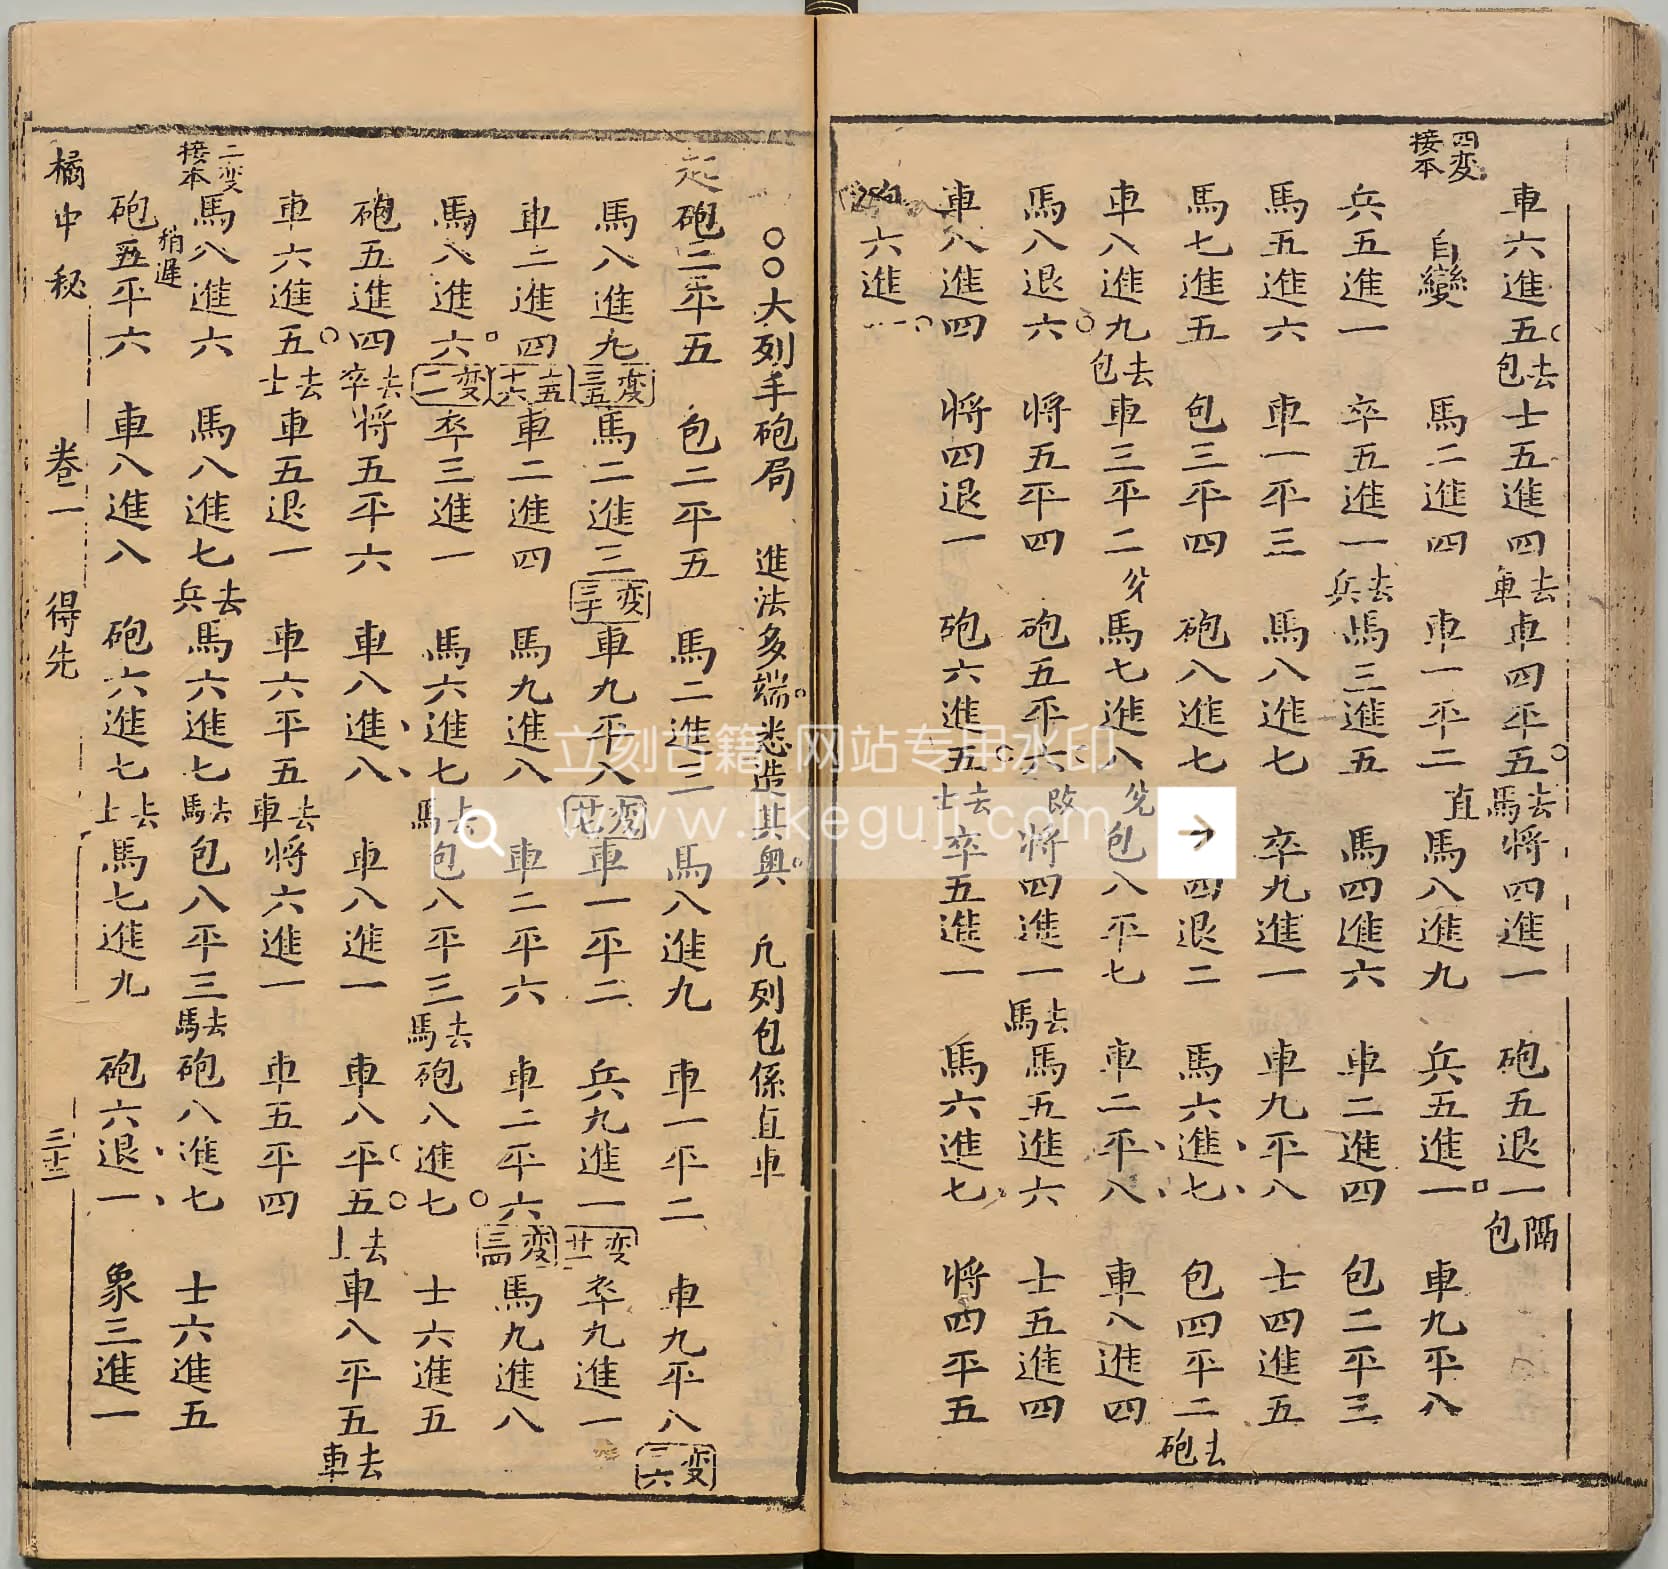 車六進五去包 士五進四去車 車四平五去馬 將四進一 砲五退一隔包
四变接本 自變 馬二進四 車一平二直 馬八進九 兵五進一 車九平八
兵五進一 卒五進一去兵 馬三進五 馬四進六 車二進四 包二平三
馬五進六 車一平三 馬八進七 卒九進一 車九平八 士四進五
馬七進五 包三平四 砲八進七 四退二 馬六進七 包四平二去砲
車八進九去包 車三平二兌 馬七進八兌 包八平七 車二平八 車八進四
馬八退六 將五平四 砲五平六改 將四進一去馬 馬五進六 士五進四
車八進四 將四退一 砲六進五去士 卒五進一 馬六進七 將四平五
砲六進一
〇〇大列手砲局 進法多端悉造其奧 凡列包係直車
起砲二平五 包二平五 馬二進三 馬八進九 車一平二 車九平八变三六
馬八進九变三五 馬二進三变三手 車九平八变花 車一平二 兵九進一变廿一 卒九進一
車二進四十五六 車二進四 馬九進八 車二平六 車二平六变三局 馬九進八
馬八進六变二一 卒三進一 馬六進七去馬 包八平三去馬 砲八進七 士六進五
砲五進四去卒 將五平六 車八進八 車八進一 車八平五去士 車八平五去車
車六進五去士 車五退一 車六平五去車 將六進一 車五平四
二变接本 馬八進六稍遲 馬八進七去兵 馬六進七去馬 包八平三去馬 砲八進七 士六進五
砲五平六 車八進八 砲六進七去士 馬七進九 砲六退一 象三進一
橘中秘 卷一 得先 三十二
立刻古籍 网站专用水印
www.lkeguji.com